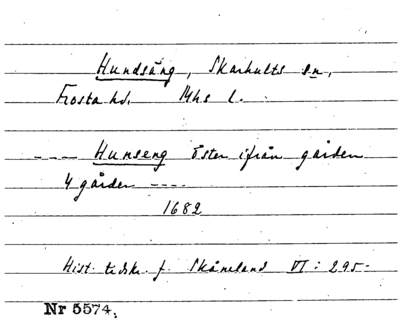 Hundsäng, Skarhults sn,
Frosta hd. Mhs l.
---- Hunseng öster ifrån gården
4 gårder ----
1682
Hist. tidskr. f. Skåneland VI: 295-
Nr 5574.